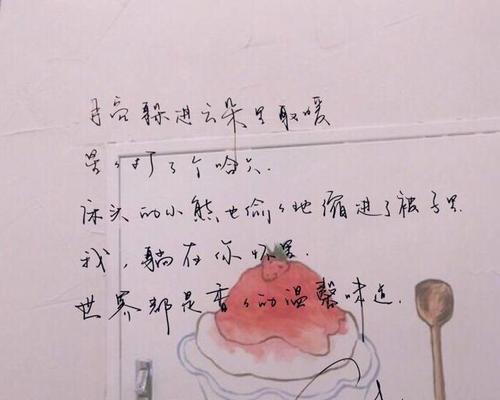 月亮躲进云朵里取暖
星星打了个哈欠.
床头的小熊也偷偷地缩进了被子里.
我,躺在你怀里.
世界都是香香的温馨味道.